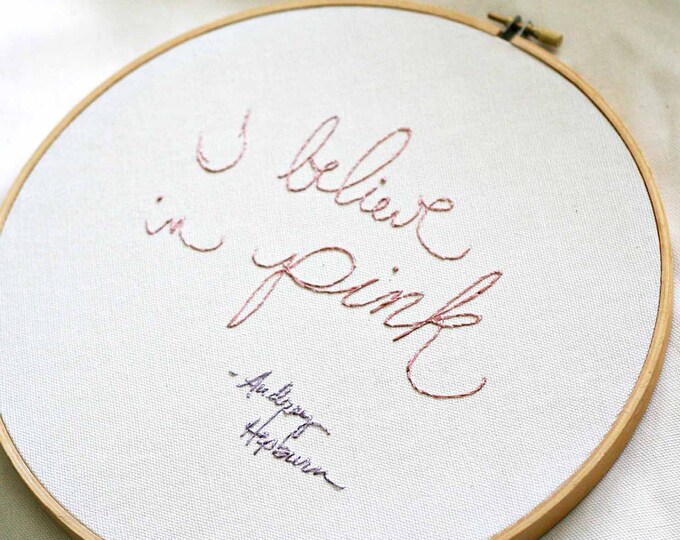 I believe
in pink
- Audrey
Hepburn